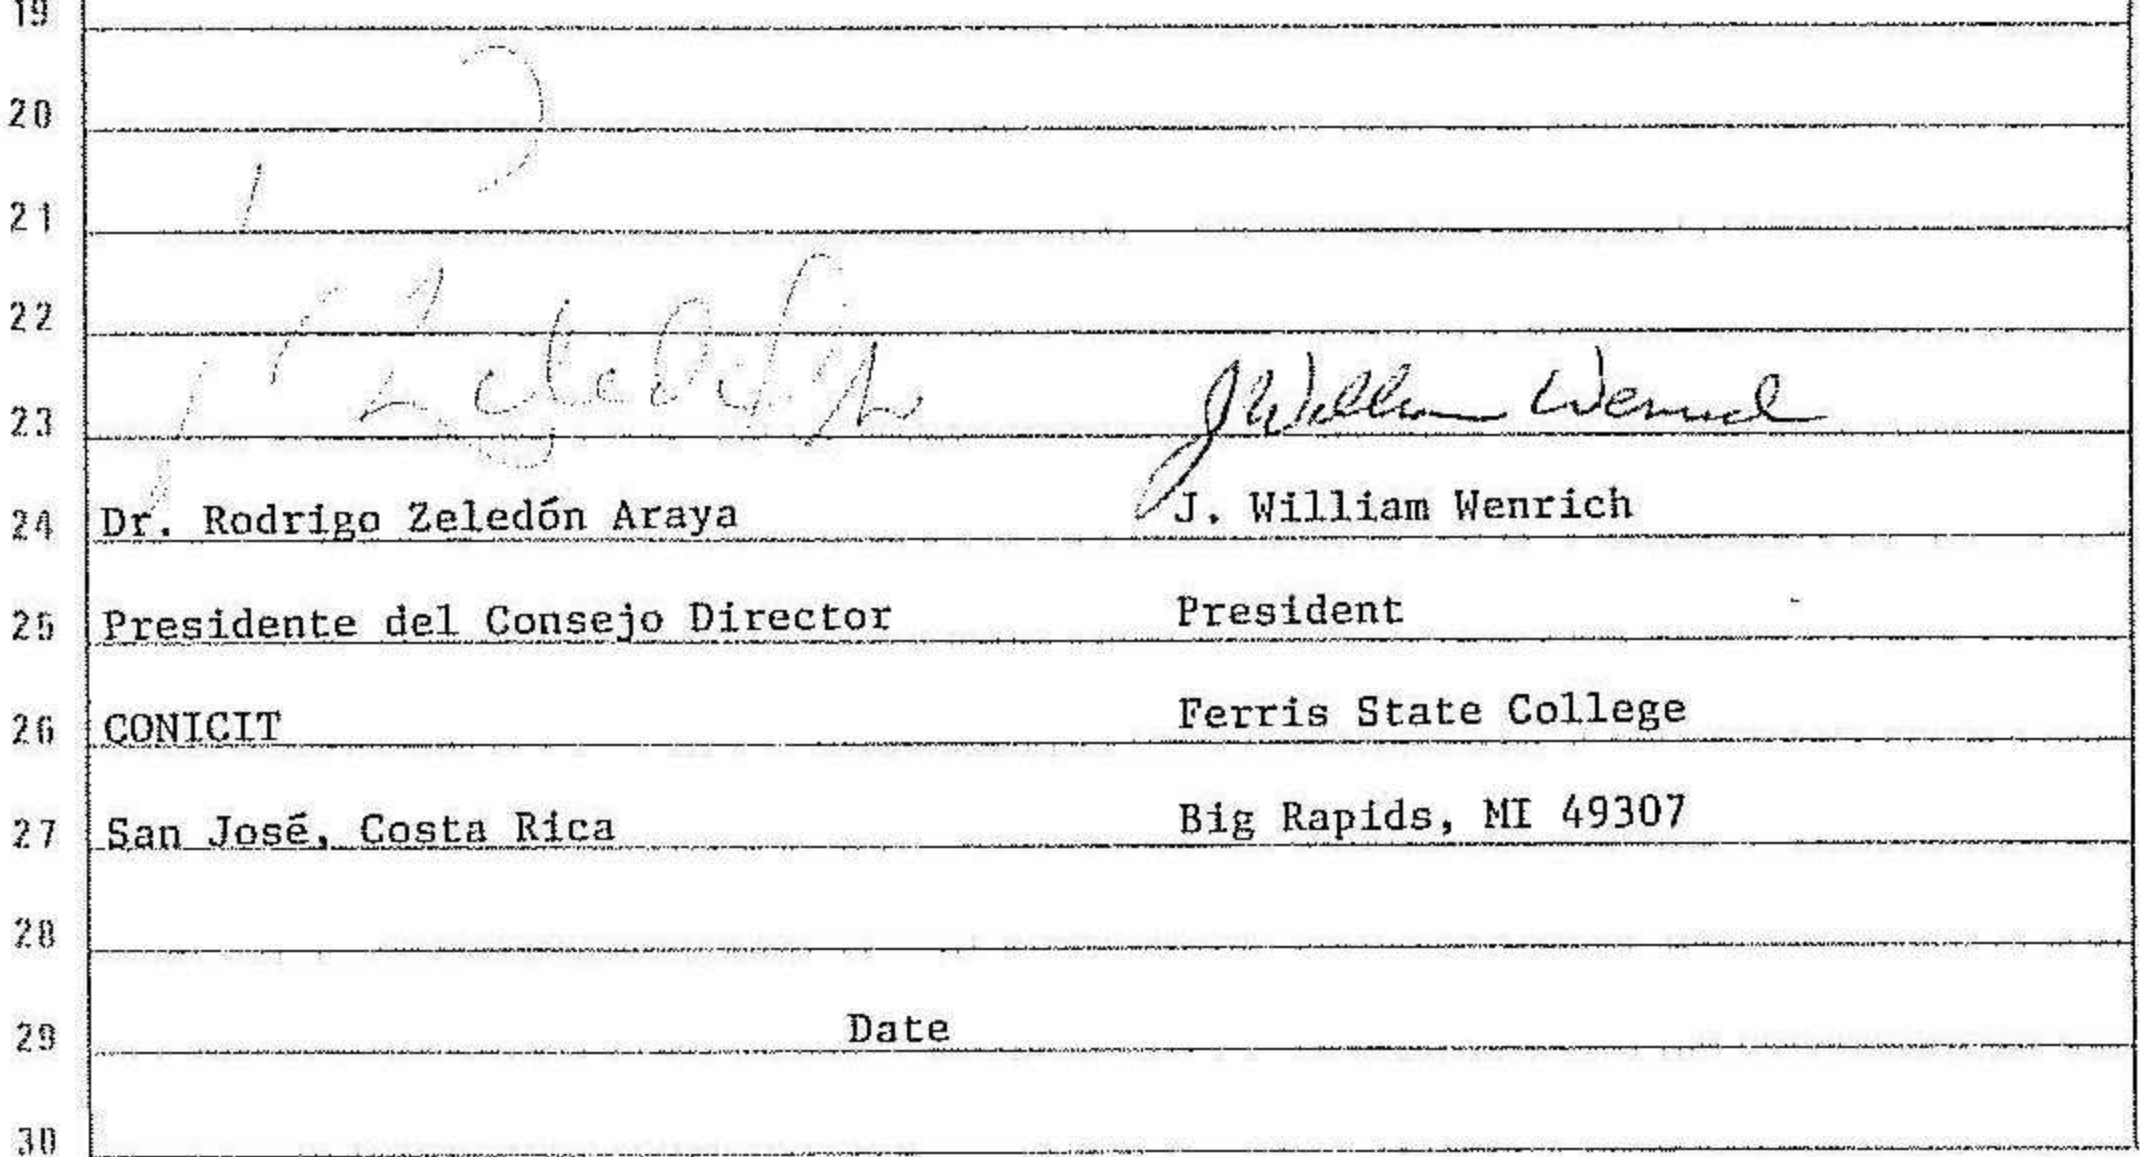 19
20
21
22
23 J William Wenrich
24 Dr. Rodrigo Zeledón Araya J. William Wenrich
25 Presidente del Consejo Director President
26 CONICIT Ferris State College
27 San José, Costa Rica Big Rapids, MI 49307
28
29 Date
30